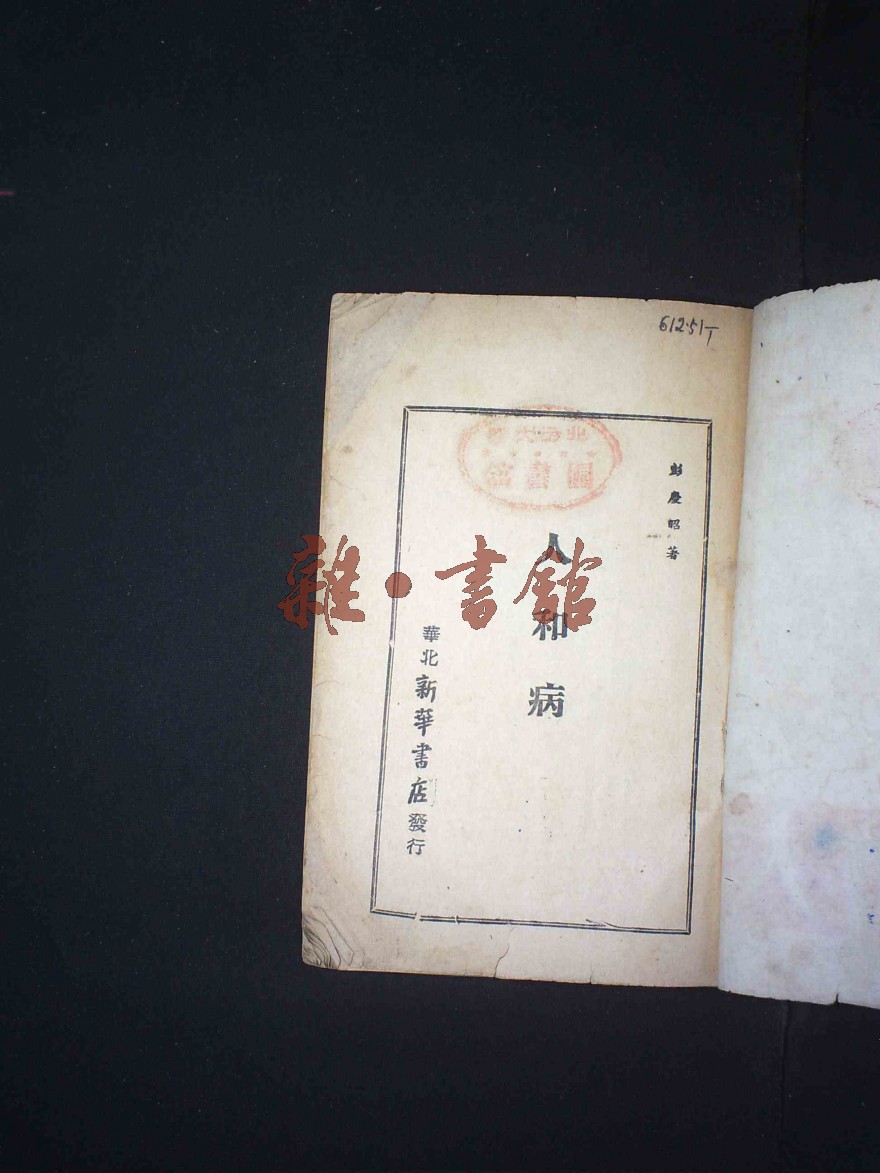 612·51T
彭慶昭著
人和病
華北新華書店發行
圖書館
雜·書館